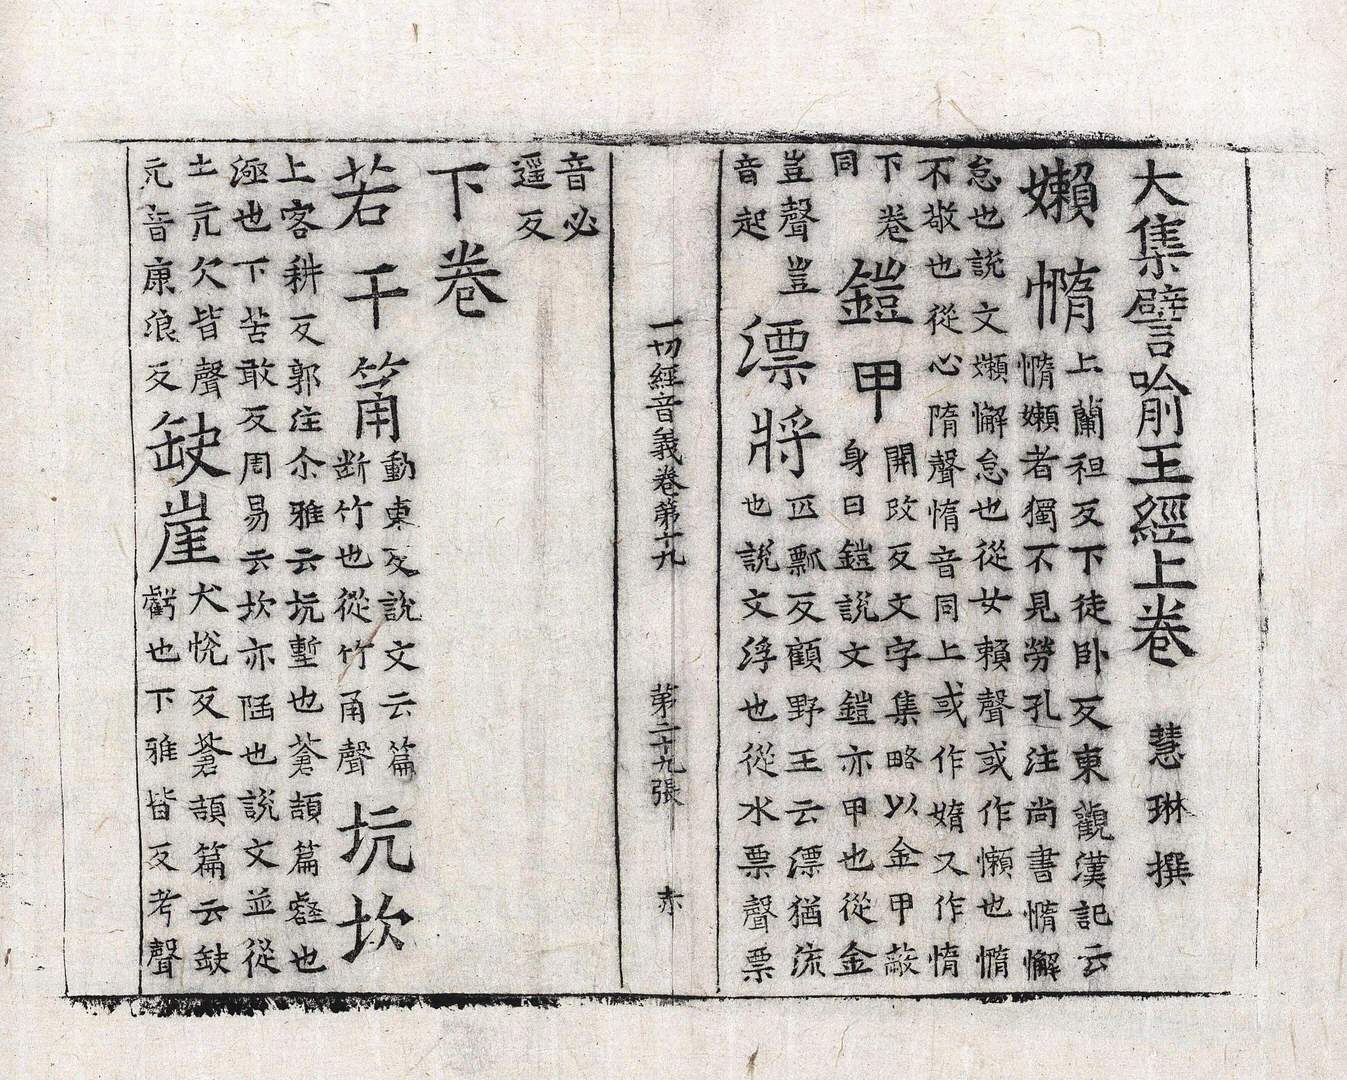 大集譬喻王經上卷 慧琳撰
嬾惰
上蘭袒反下徒卧反東觀漢記云
惰嬾者獨不見勞孔注尚書惰懈
怠也說文嬾懈怠也從女賴聲或作懶也惰
不敬也從心隋聲惰音同上或作媠又作惰
下卷
同
鎧甲
開改反文字集略以金甲蔽
身曰鎧說文鎧亦甲也從金
豈聲豈
音起
漂將
匹瓢反顧野王云漂猶流
也說文浮也從水票聲票
一切經音義卷第十九 第二十九張 赤
音必
遥反
下卷
若干筩
動東反說文云篇
断竹也從竹甬聲
坑坎
上客耕反郭注尒雅云坑塹也蒼頡篇壑也
極也下苦敢反周易云坎亦陷也說文並從
土亢欠皆聲
亢音康浪反
缺崖
犬悅反蒼頡篇云缺
虧也下雅皆反考聲